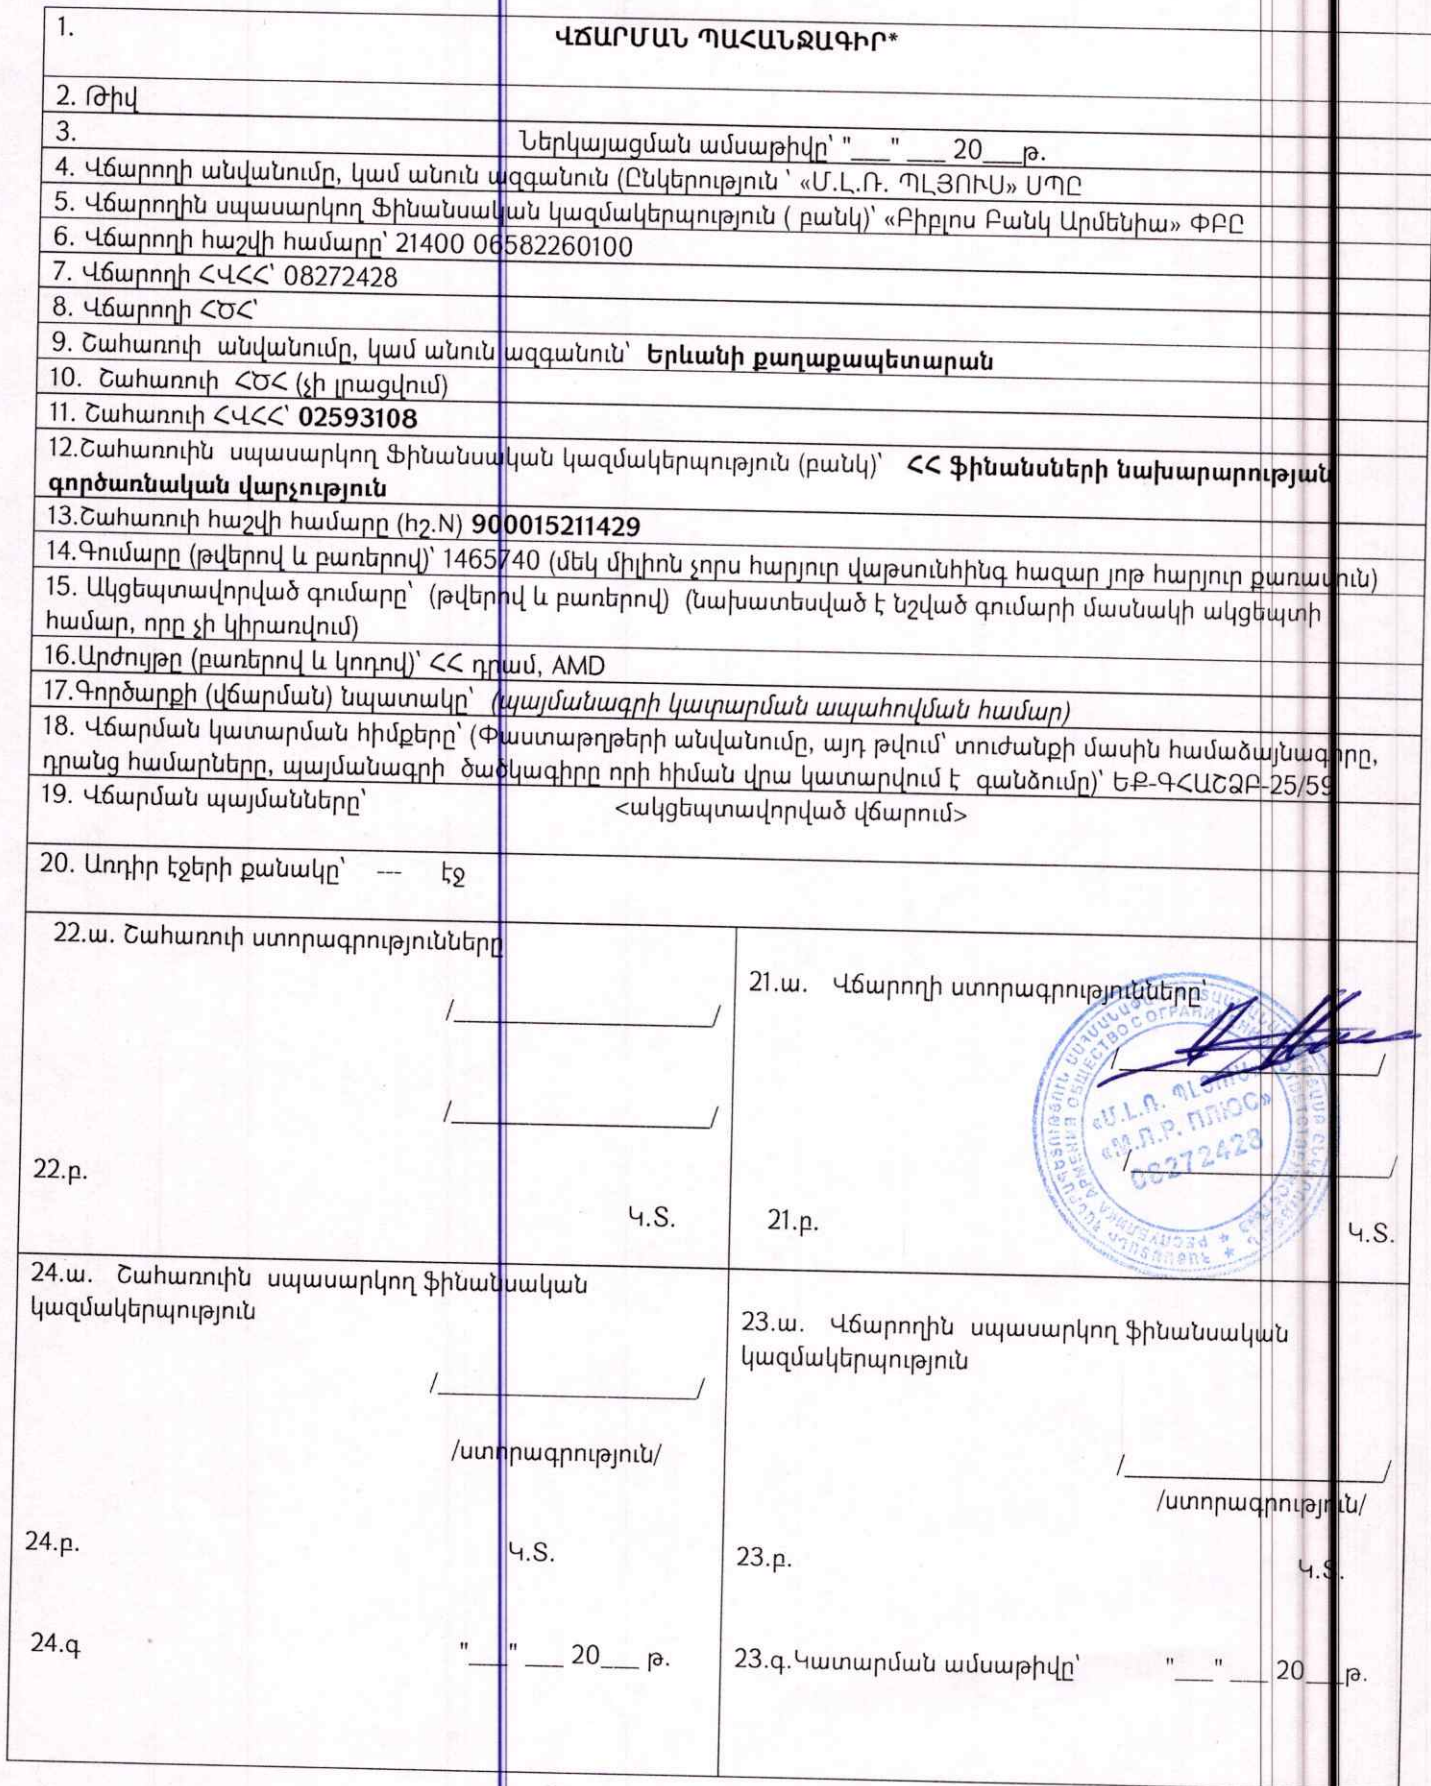 1.
ՎՃԱՐՄԱՆ ՊԱՀԱՆՋԱԳԻՐ*
2. Թիվ
3.
Ներկայացման ամսաթիվը՝ "___" ___ 20___թ.
4. Վճարողի անվանումը, կամ անուն ազգանուն (Ընկերություն ՝ «Մ.Լ.Ռ. ՊԼՅՈՒՍ» ՍՊԸ
5. Վճարողին սպասարկող Ֆինանսական կազմակերպություն ( բանկ)՝ «Բիբլոս Բանկ Արմենիա» ՓԲԸ
6. Վճարողի հաշվի համարը՝ 21400 06582260100
7. Վճարողի ՀՎՀՀ՝ 08272428
8. Վճարողի ՀԾՀ՝
9. Շահառուի անվանումը, կամ անուն ազգանուն՝ Երևանի քաղաքապետարան
10. Շահառուի ՀԾՀ (չի լրացվում)
11. Շահառուի ՀՎՀՀ՝ 02593108
12.Շահառուին սպասարկող Ֆինանսական կազմակերպություն (բանկ)՝ ՀՀ ֆինանսների նախարարության
գործառնական վարչություն
13.Շահառուի հաշվի համարը (հշ.N) 900015211429
14.Գումարը (թվերով և բառերով)՝ 1465740 (մեկ միլիոն չորս հարյուր վաթսունհինգ հազար յոթ հարյուր քառասուն)
15. Ակցեպտավորված գումարը՝ (թվերով և բառերով) (նախատեսված է նշված գումարի մասնակի ակցեպտի
համար, որը չի կիրառվում)
16.Արժույթը (բառերով և կոդով)՝ ՀՀ դրամ, AMD
17.Գործարքի (վճարման) նպատակը՝ (պայմանագրի կատարման ապահովման համար)
18. Վճարման կատարման հիմքերը՝ (Փաստաթղթերի անվանումը, այդ թվում՝ տուժանքի մասին համաձայնագիրը,
դրանց համարները, պայմանագրի ծածկագիրը որի հիման վրա կատարվում է գանձումը)՝ ԵՔ-ԳՀԱՇՁԲ-25/59
19. Վճարման պայմանները՝ <ակցեպտավորված վճարում>
20. Առդիր էջերի քանակը՝ --- էջ
22.ա. Շահառուի ստորագրությունները
/____________/
/____________/
22.բ.
Կ.Տ.
21.ա. Վճարողի ստորագրությունները՝
/____________/
«Մ.Լ.Ռ. ՊԼՅՈՒՍ»
«М.Л.Р. ПЛЮС»
08272428
/____________/
21.բ.
Կ.Տ.
24.ա. Շահառուին սպասարկող ֆինանսական
կազմակերպություն
/____________/
/ստորագրություն/
24.բ.
Կ.Տ.
24.գ "___" ___ 20___ թ.
23.ա. Վճարողին սպասարկող ֆինանսական
կազմակերպություն
/____________/
/ստորագրություն/
23.բ.
Կ.Տ.
23.գ.Կատարման ամսաթիվը՝ "___" ___ 20___թ.